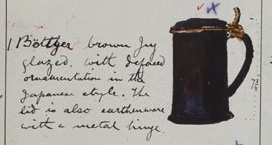 1 Böttger brown Jug
glazed. with defaced
ornamentation in the
Japanese style. The
lid is also earthenware
with a metal hinge.